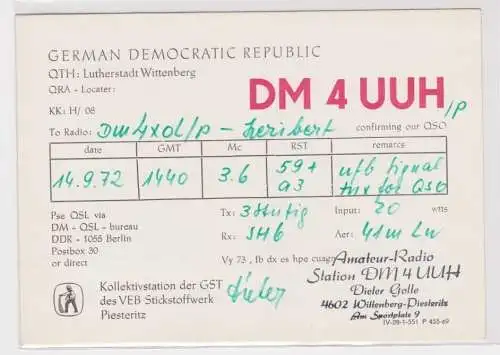 GERMAN DEMOCRATIC REPUBLIC
QTH: Lutherstadt Wittenberg
QRA - Locater:
KK: H/ 08
DM 4 UUH/p
To Radio: DM4XOL/p - Heribert confirming our QSO
date GMT Mc RST remarcs
14.9.72 1440 3.6 59+ ufb Signal
a3 tnx for QSO
Pse QSL via
DM - QSL - bureau
DDR - 1055 Berlin
Postbox 30
or direct
Tx: 3stufig Input: 20 wtts
Rx: SH6 Aer: 41m Lw
Vy 73, fb dx es hpe cuagn
Kollektivstation der GST
des VEB Stickstoffwerk
Piesteritz
Dieter
Amateur-Radio
Station DM 4 UUH
Dieter Golle
4602 Wittenberg-Piesteritz
Am Sportplatz 9
IV-28-1-551 P 455-69